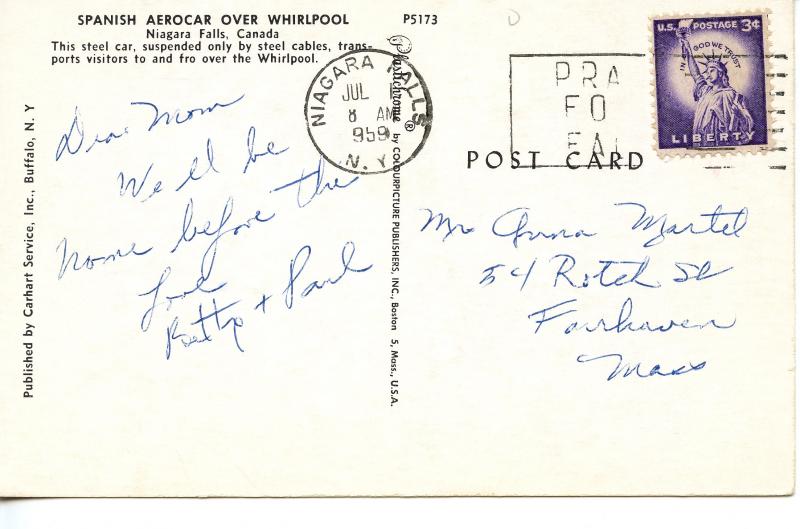 SPANISH AEROCAR OVER WHIRLPOOL
Niagara Falls, Canada
This steel car, suspended only by steel cables, trans-
ports visitors to and fro over the Whirlpool.
P5173
Dear Mom
We'll be
home before the
Love
Betty + Paul
Published by Carhart Service, Inc., Buffalo, N. Y
Plastichrome ® by COLOURPICTURE PUBLISHERS, INC., Boston 5, Mass., U.S.A.
NIAGARA FALLS
JUL 1
8 AM
959
N. Y.
PRA
FO
U.S. POSTAGE 3¢
IN GOD WE TRUST
LIBERTY
POST CARD
Mrs Anna Martel
54 Rotch St
Fairhaven
Mass